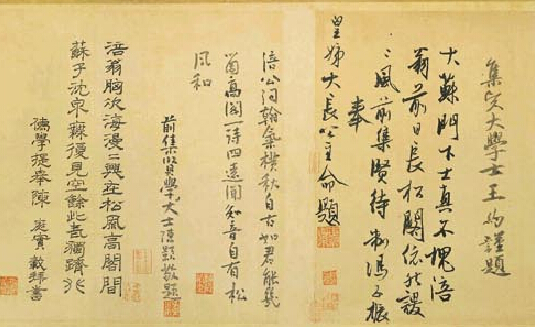 集賢大學士王約謹題
大蘇門下士真不愧涪
翁前日長松閣依然謖
〻風前集賢待制馮子振
奉
皇姊大長公主命題
涪公詞翰氣橫秋自古如君能幾
留高閣一詩四遠聞知音自有松
風和
前集賢學士陳顥敬題
涪翁胸次海漫〻興在松風高閣間
蘇子沈泉難復見空餘此卷獨躋
儒學提舉陳庭實敬拜書